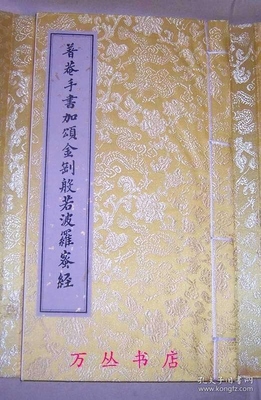 普菴手書加頌金剛般若波羅蜜經
万丛书店
孔夫子旧书网